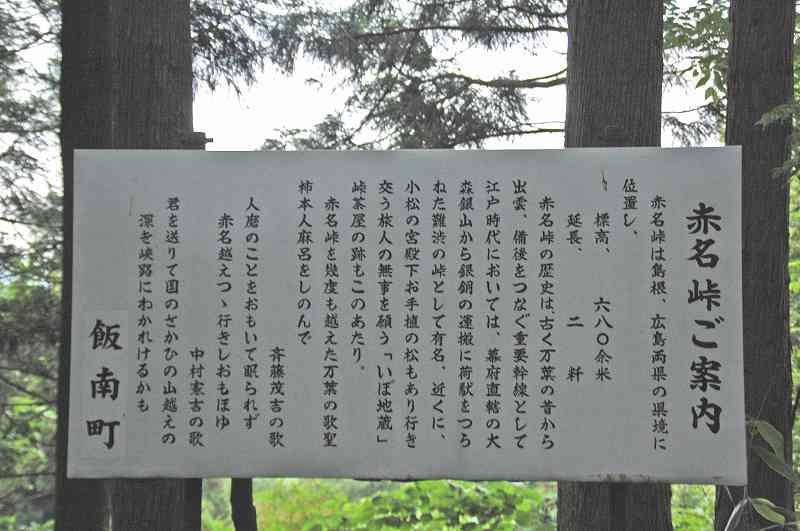 赤名峠ご案内
赤名峠は島根、広島両県の県境に
位置し、
標高、 六八〇余米
延長、 二 粁
赤名峠の歴史は、古く万葉の昔から
出雲、備後をつなぐ重要幹線として
江戸時代においては、幕府直轄の大
森銀山から銀銅の運搬に荷駄をつら
ねた難渋の峠として有名、近くに、
小松の宮殿下お手植の松もあり行き
交う旅人の無事を願う「いぼ地蔵」
峠茶屋の跡もこのあたり。
赤名峠を幾度も越えた万葉の歌聖
柿本人麻呂をしのんで
斉藤茂吉の歌
人麿のことをおもいて眠られず
赤名越えつゝ行きしおもほゆ
中村憲吉の歌
君を送りて国のざかひの山越えの
深き峡路にわかれけるかも
飯南町